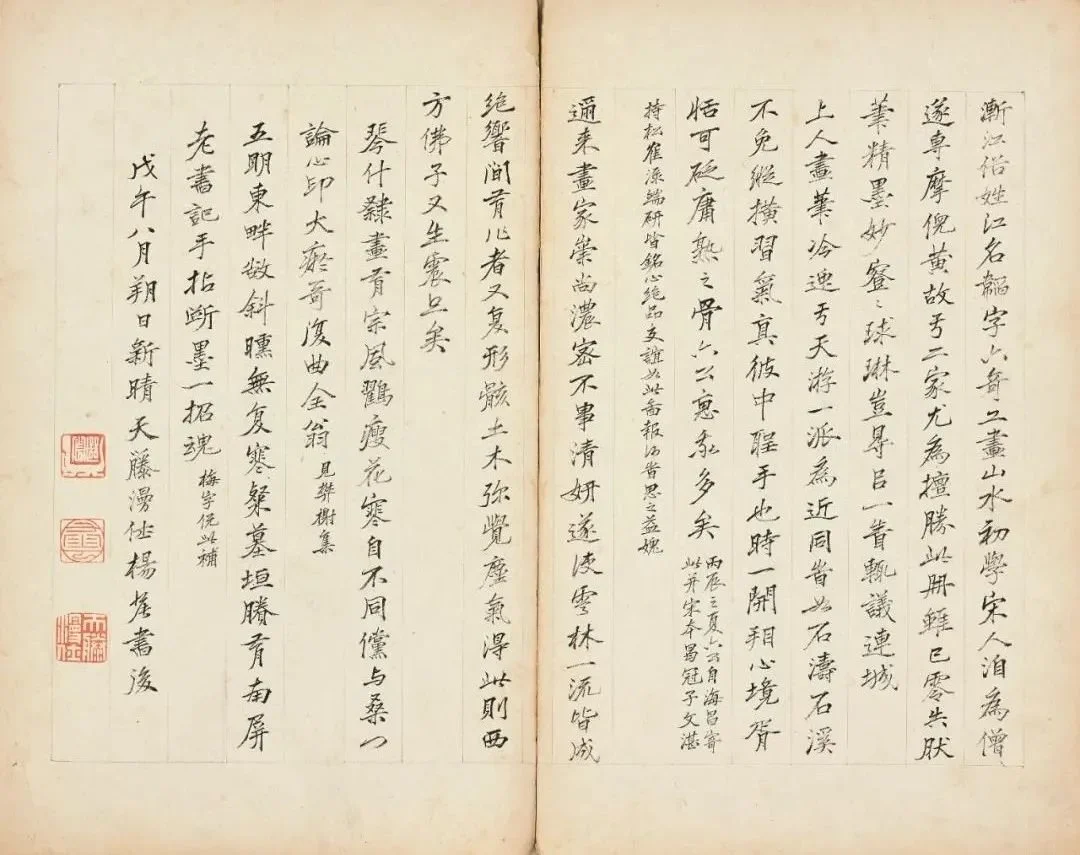 漸江俗姓江名韜字六奇工畫山水初學宋人洎為僧
遂專摩倪黃故于二家尤為擅勝此冊雖已零失肰
筆精墨妙寥〻球琳豈尋尺一眚輒議連城
上人畫筆冷逸于天游一派為近同眚如石濤石溪
不免縱橫習氣真彼中聖手也時一開翔心境胥
恬可砭庸熟之骨六公惠我多矣
丙辰之夏六公自海昌寄
此并宋本鶡冠子文湛
持松崔澡端研皆銘心絕品交誼如此喬報何眚思之益媿
邇来畫家崇尚濃密不事清妍遂使雩林一流皆成
絕響間有作者又复形骸土木弥覺塵氣得此則西
方佛子又生震旦矣
琴什隸畫有宗風鸛瘦花寒自不同儻与桑门
論心印大瘀哥復曲全翁
見樊榭集
五明東畔故斜曛無复寒粲墓垣賸有南屏
老書記手拈断墨一招魂
梅字俔此補
戊午八月朔日新晴天籐漫仕楊 書後